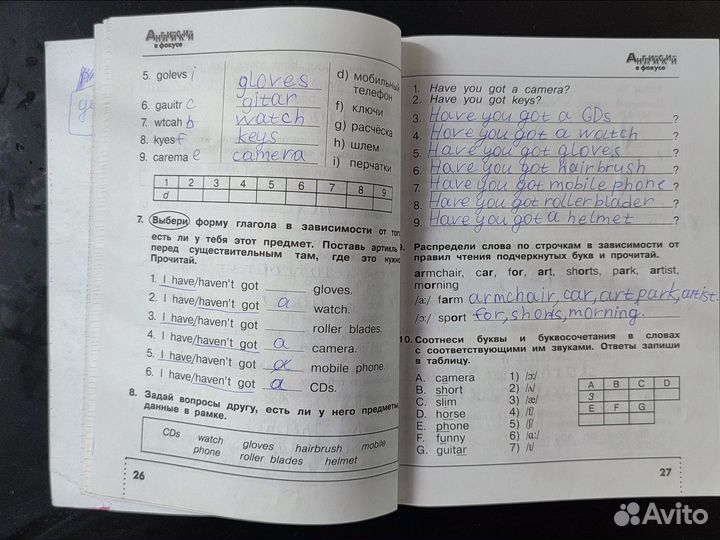 Английский
в фокусе
5. golevs i gloves d) мобильный
телефон
6. gauitr c gitar f) ключи
7. wtcah b watch g) расчёска
8. kyes f keys h) шлем
9. carema e camera i) перчатки
1 2 3 4 5 6 7 8 9
d
7. Выбери форму глагола в зависимости от того,
есть ли у тебя этот предмет. Поставь артикль
перед существительным там, где это нужно.
Прочитай.
1. I have/haven't got ____ gloves.
2. I have/haven't got a watch.
3. I have/haven't got ____ roller blades.
4. I have/haven't got a camera.
5. I have/haven't got a mobile phone.
6. I have/haven't got a CDs.
8. Задай вопросы другу, есть ли у него предметы,
данные в рамке.
CDs watch gloves hairbrush mobile
phone roller blades helmet
26
Английский
в фокусе
1. Have you got a camera?
2. Have you got keys?
3. Have you got a CDs ?
4. Have you got a watch ?
5. Have you got gloves ?
6. Have you got hairbrush ?
7. Have you got mobile phone ?
8. Have you got rollerblader ?
9. Have you got a helmet ?
9. Распредели слова по строчкам в зависимости от
правил чтения подчеркнутых букв и прочитай.
armchair, car, for, art, shorts, park, artist,
morning
/ɑ:/ farm armchair, car, art park, artist.
/ɔ:/ sport for, shorts, morning.
10. Соотнеси буквы и буквосочетания в словах
с соответствующими им звуками. Ответы запиши
в таблицу.
A. camera 1) /ɔ:/
B. short 2) /ʌ/
C. slim 3) /æ/
D. horse 4) /f/
E. phone 5) /ʃ/
F. funny 6) /ɑ:/
G. guitar 7) /ɪ/
A B C D
3
E F G
27
Avito